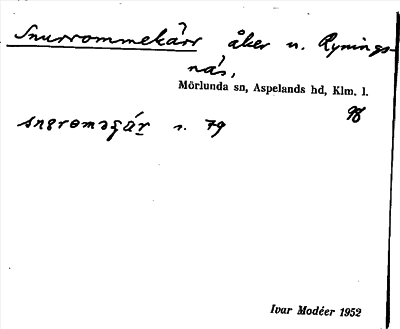 Snurrommekärr åker n. Rynings-
näs,
Mörlunda sn, Aspelands hd, Klm. l.
98
s. 79
Ivar Modéer 1952